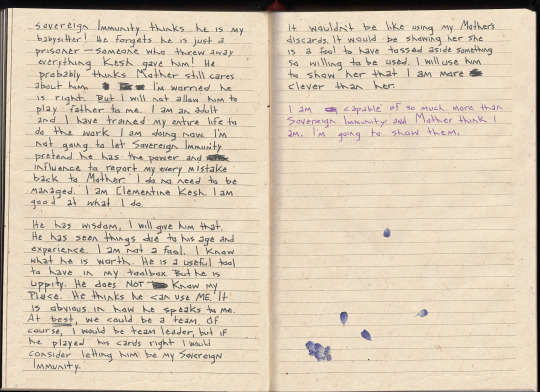 Sovereign Immunity thinks he is my
babysitter! He forgets he is just a
prisoner — someone who threw away
everything Kesh gave him! He
probably thinks Mother still cares
about him. I'm worried he
is right. But I will not allow him to
play father to me. I am an adult
and I have trained my entire life to
do the work I am doing now. I'm
not going to let Sovereign Immunity
pretend he has the power and
influence to report my every mistake
back to Mother. I do no need to be
managed. I am Clementine Kesh. I am
good at what I do.
He has wisdom, I will give him that.
He has seen things due to his age and
experience. I am not a fool. I know
what he is worth. He is a useful tool
to have in my toolbox. But he is
uppity. He does NOT Know my
Place. He thinks he can use ME. It
is obvious in how he speaks to me.
At best, we could be a team. Of
course, I would be team leader, but if
he played his cards right I would
consider letting him be my Sovereign
Immunity.
It wouldn't be like using my Mother's
discards. It would be showing her she
is a fool to have tossed aside something
so willing to be used. I will use him
to show her that I am more
clever than her.
I am capable of so much more than
Sovereign Immunity and Mother think I
am. I'm going to show them.